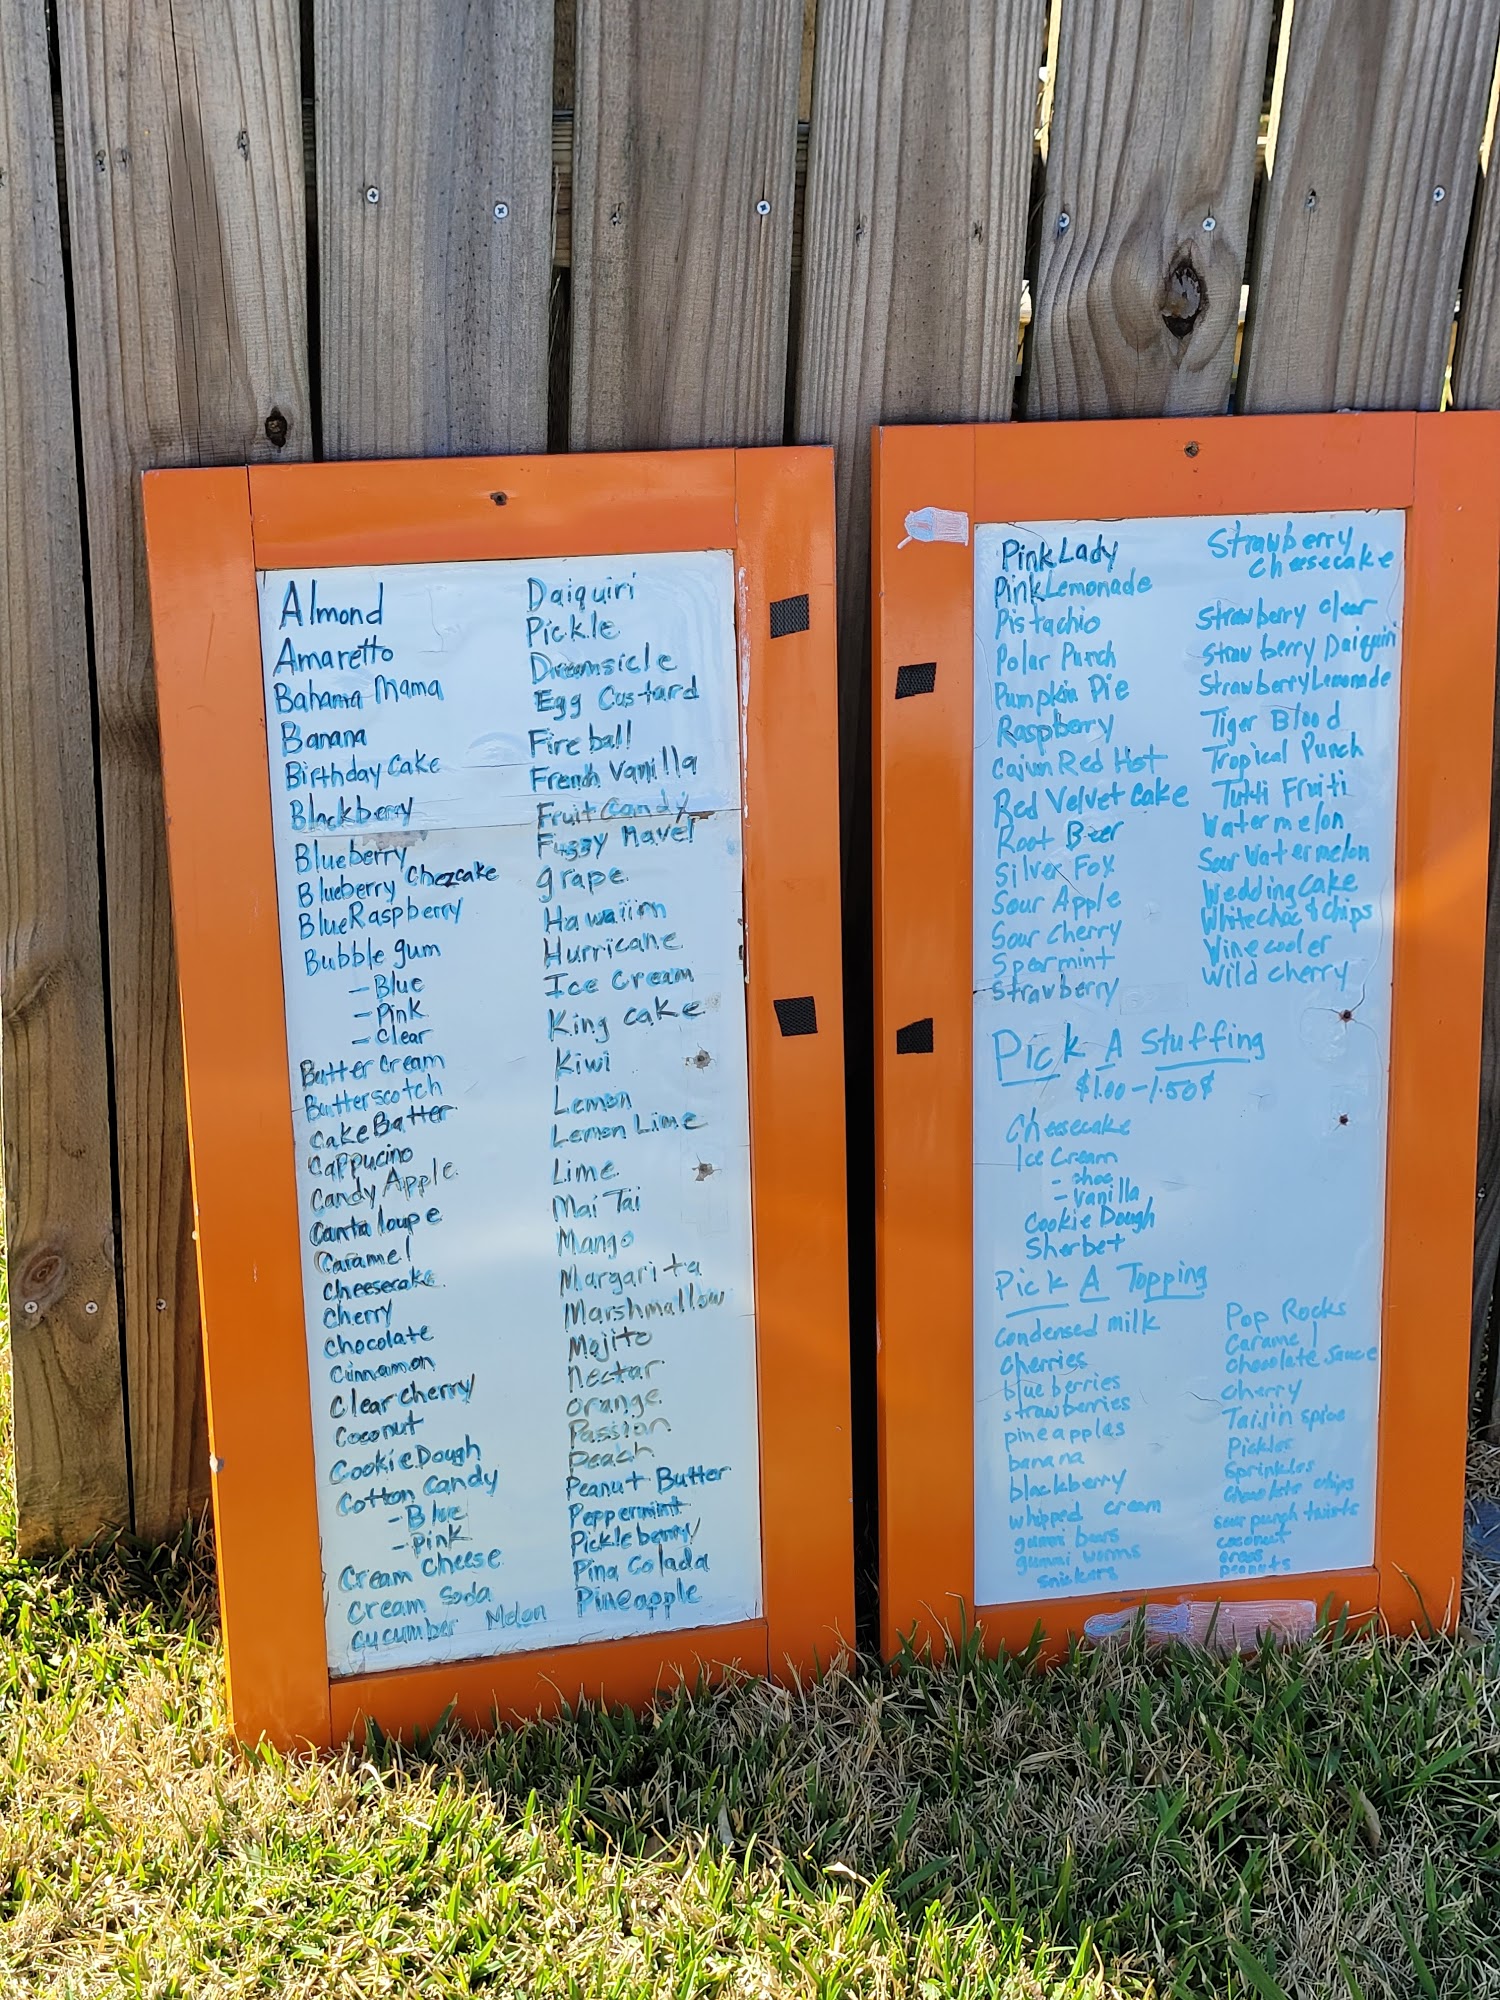 Almond
Amaretto
Bahama Mama
Banana
Birthday Cake
Blackberry
Blueberry
Blueberry Chezcake
Blue Raspberry
Bubble gum
- Blue
- Pink
- Clear
Butter Cream
Butterscotch
Cake Batter
Cappucino
Candy Apple
Cantaloupe
Caramel
Cheesecake
Cherry
Chocolate
Cinnamon
Clear Cherry
Coconut
Cookie Dough
Cotton Candy
- Blue
- Pink
Cream Cheese
Cream Soda
Cucumber Melon
Daiquiri
Pickle
Dreamsicle
Egg Custard
Fireball
French Vanilla
Fruit Candy
Fuzzy Navel
grape
Hawaiian
Hurricane
Ice Cream
King cake
Kiwi
Lemon
Lemon Lime
Lime
Mai Tai
Mango
Margarita
Marshmallow
Mojito
Nectar
Orange
Passion
Peach
Peanut Butter
Peppermint
Pickleberry
Pina Colada
Pineapple
Pink Lady
Pink Lemonade
Pistachio
Polar Punch
Pumpkin Pie
Raspberry
Cajun Red Hot
Red Velvet Cake
Root Beer
Silver Fox
Sour Apple
Sour Cherry
Spearmint
Strawberry
Strawberry
Cheesecake
Strawberry Clear
Strawberry Daiquiri
Strawberry Lemonade
Tiger Blood
Tropical Punch
Tutti Fruiti
Watermelon
Sour Watermelon
Wedding Cake
White choc & Chips
Wine cooler
Wild cherry
Pick A Stuffing
$1.00 - 1.50¢
Cheesecake
Ice Cream
- choc
- Vanilla
Cookie Dough
Sherbet
Pick A Topping
Condensed milk
Cherries
blueberries
strawberries
pineapples
banana
blackberry
whipped cream
gummi bears
gummi worms
snickers
Pop Rocks
Caramel
Chocolate Sauce
Cherry
Taijin spice
Pickles
Sprinkles
Chocolate chips
sour punch twists
coconut
oreos
peanuts